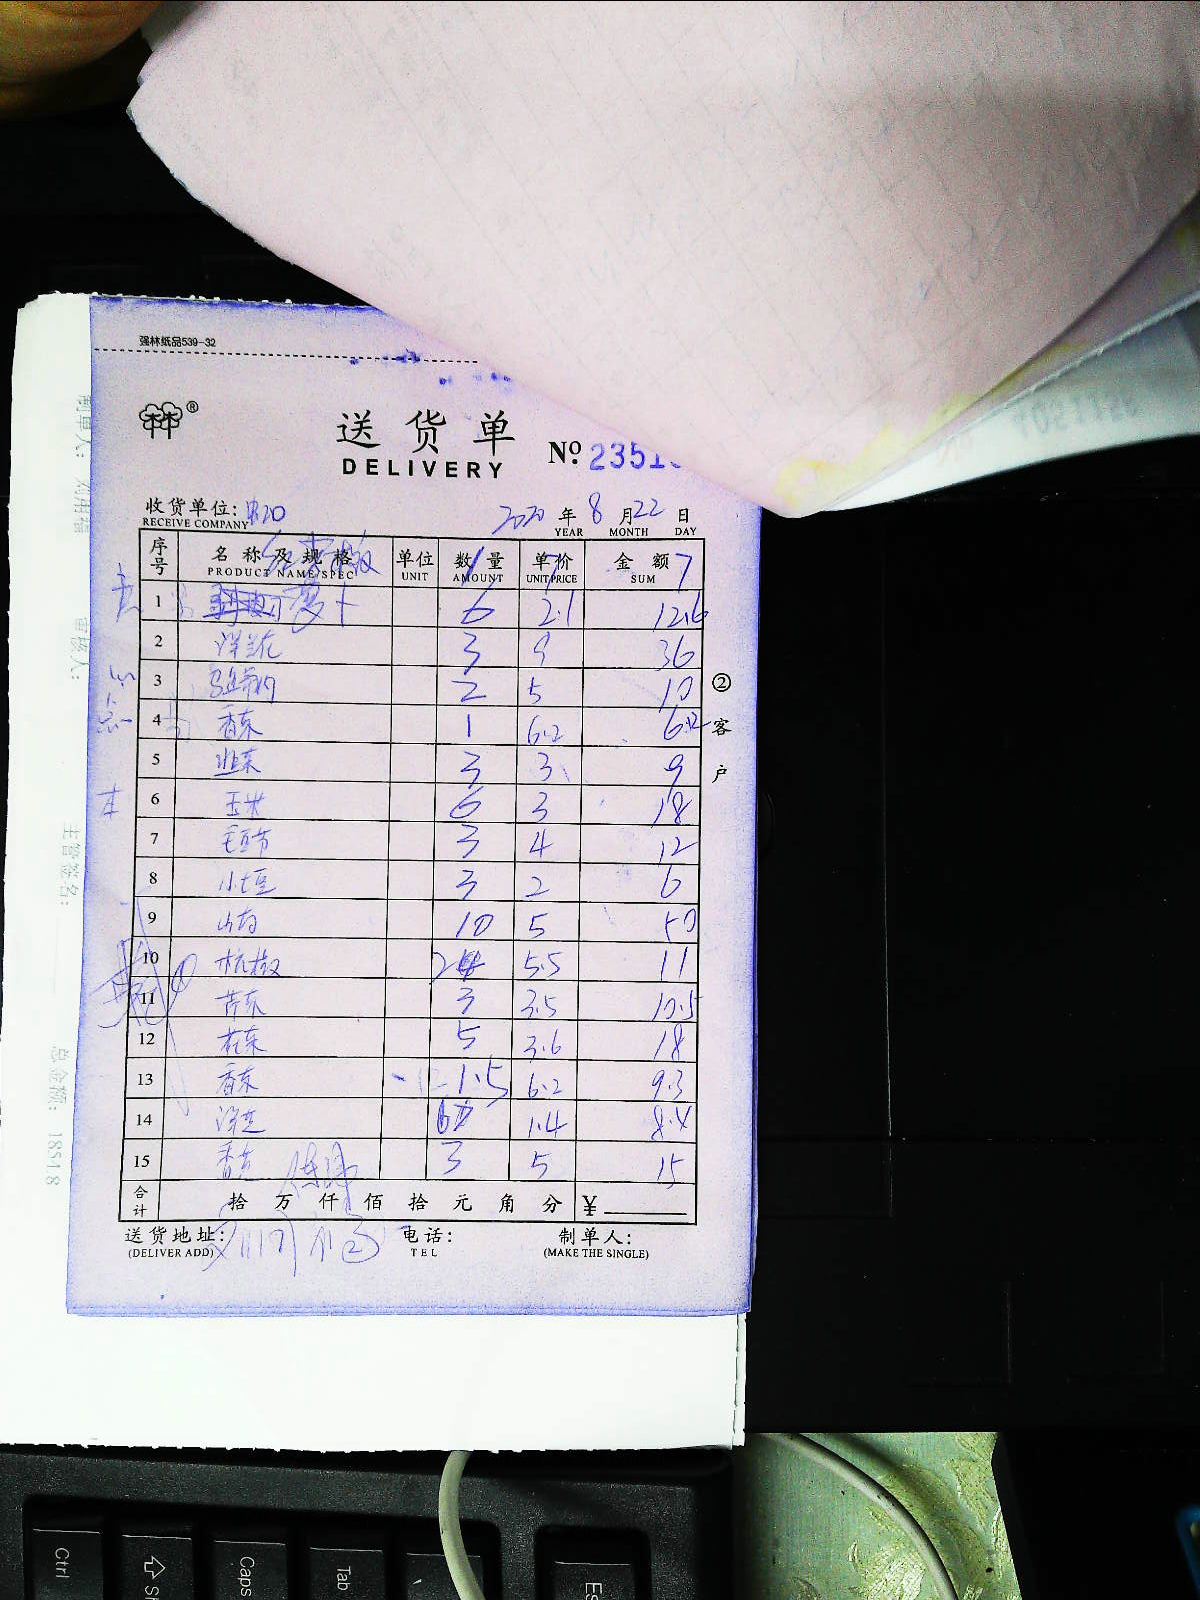 强林纸品539-32
林林®
送货单
DELIVERY
No. 2351
收货单位: 820
RECEIVE COMPANY
2020 年 8 月 22 日
YEAR MONTH DAY
序号 名称及规格 单位 数量 单价 金额
PRODUCT NAME/SPEC UNIT AMOUNT UNIT PRICE SUM
红尖椒 1 7 7
1 萝卜 6 2.1 12.6
2 3 9 36
3 2 5 10
4 香菜 1 6.2 6.2
5 韭菜 3 3 9
6 玉米 6 3 18
7 毛豆节 3 4 12
8 小土豆 3 2 6
9 山药 10 5 50
10 杭椒 2 5.5 11
11 芹菜 3 3.5 10.5
12 花菜 5 3.6 18
13 香菜 1.5 6.2 9.3
14 6 1.4 8.4
15 3 5 15
合计 拾 万 仟 佰 拾 元 角 分 ¥
送货地址: 电话: 制单人:
(DELIVER ADD) TEL (MAKE THE SINGLE)
②客户
制单人: 刘用福
审核人:
主管签名:
总金额: 1851.8
Ctrl
Caps
Tab